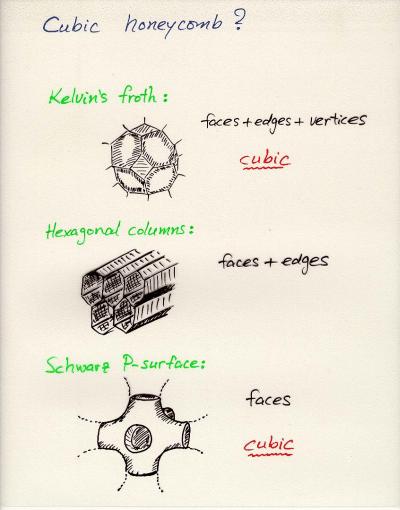 Cubic honeycomb?
Kelvin's froth:
faces+edges+vertices
cubic
Hexagonal columns:
faces + edges
Schwarz P-surface:
faces
cubic